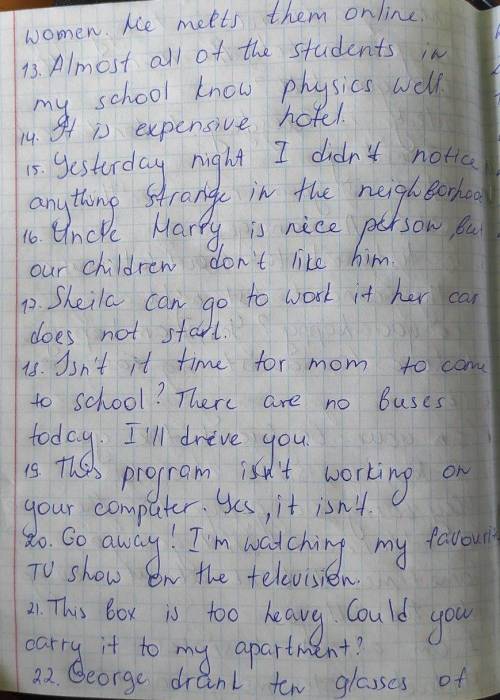 women. He meets them online.
13. Almost all of the students in
my school know physics well.
14. It is expensive hotel.
15. Yesterday night I didn't notice
anything strange in the neighborhoo
16. Uncle Harry is nice person, bu
our children don't like him.
17. Sheila can go to work if her car
does not start.
18. Isn't it time for mom to come
to school? There are no buses
today. I'll drive you.
19. This program isn't working on
your computer. Yes, it isn't.
20. Go away! I'm watching my favourit
TV show on the television.
21. This box is too heavy. Could you
carry it to my apartment?
22. George drank ten glasses of